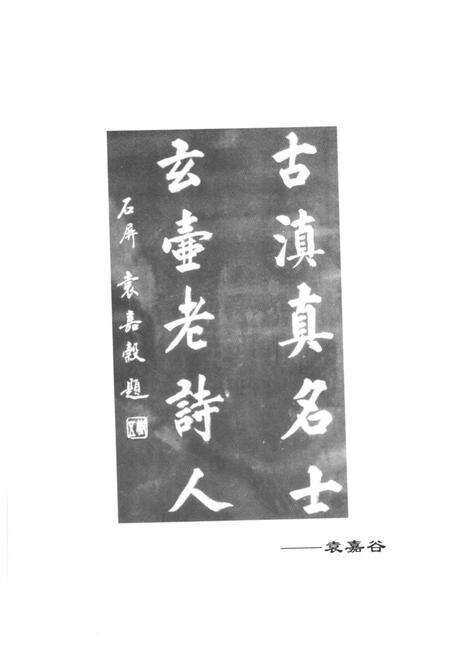 古滇真名士
玄壺老詩人
石屏袁嘉穀題
——袁嘉谷